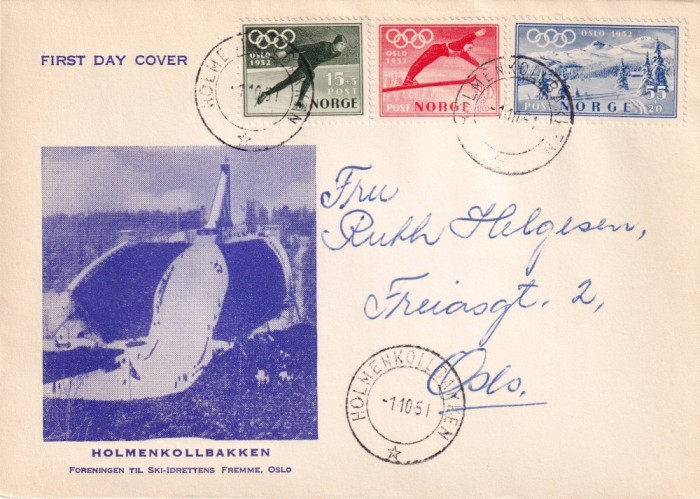 FIRST DAY COVER
OSLO 1952
15+5
POST
NORGE
OSLO
1952
POST NORGE
OSLO 1952
55
POST NORGE 20
HOLMENKOLLBAKKEN
-1.10.51
Fru
Ruth Helgesen,
Freiasgt. 2,
Oslo.
HOLMENKOLLBAKKEN
-1.10.51
HOLMENKOLLBAKKEN
FORENINGEN TIL SKI-IDRETTENS FREMME, OSLO